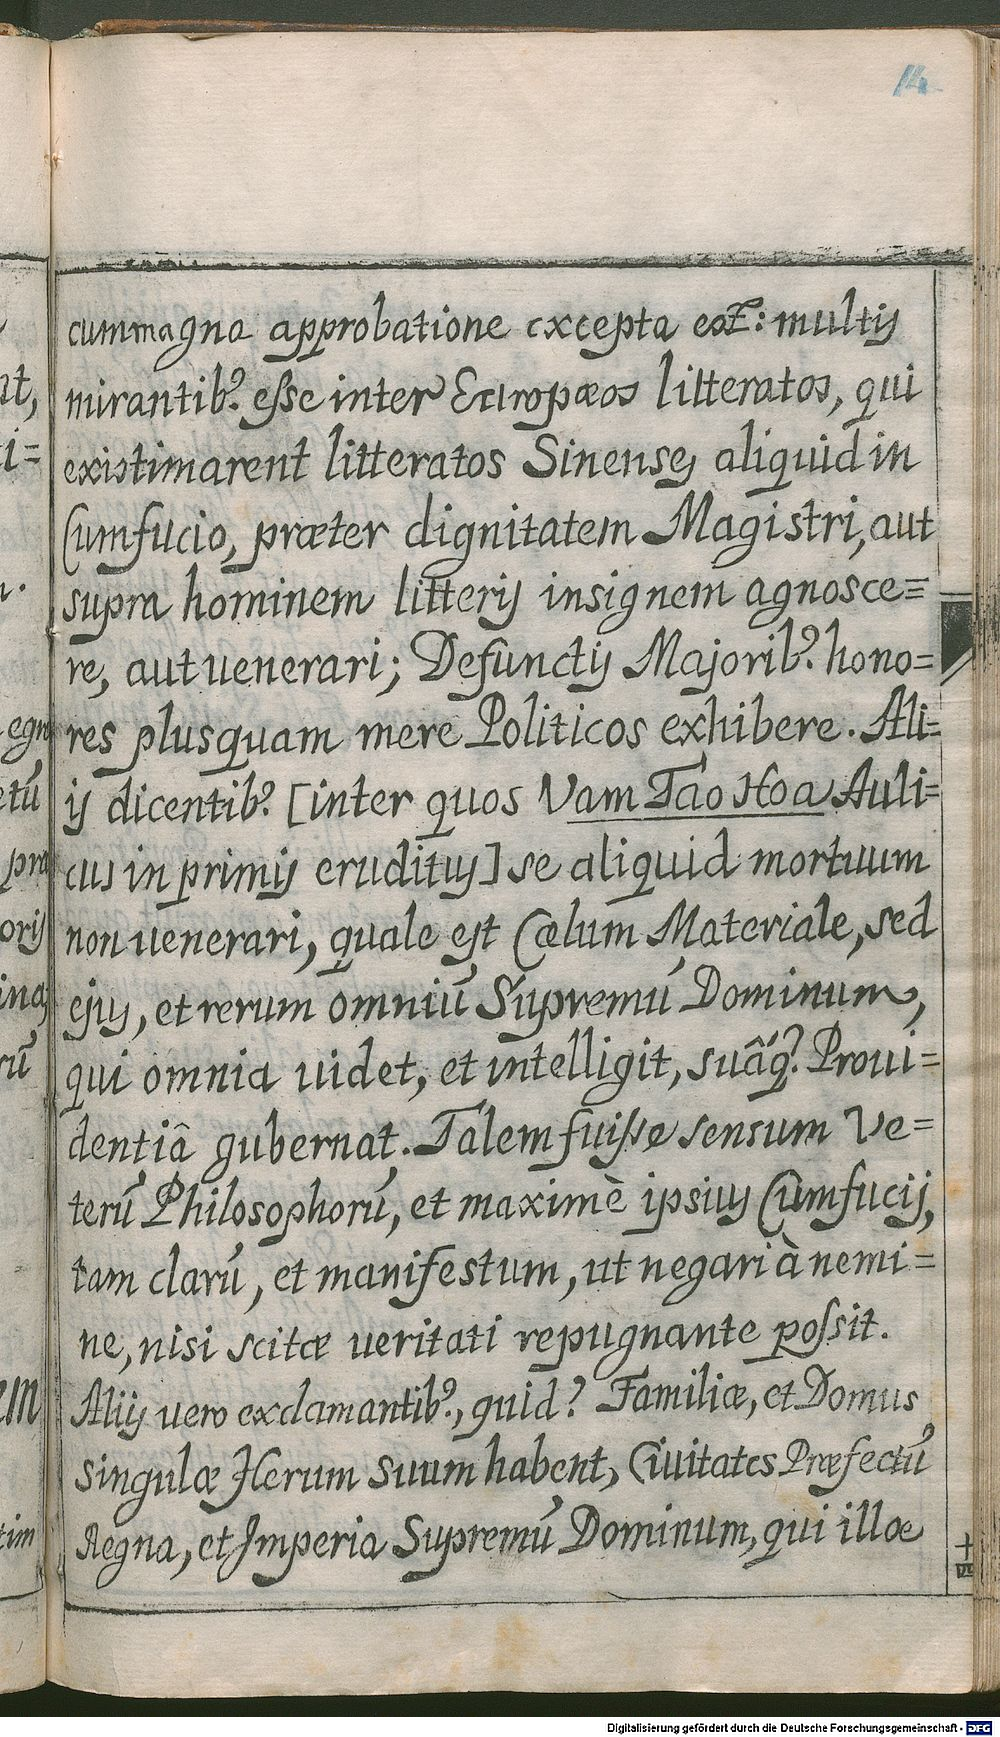 14
cummagna approbatione excepta est: multis
mirantib⁹. esse inter Europæos litteratos, qui
existimarent litteratos Sinenses aliquid in
Cumfucio, præter dignitatem Magistri, aut
supra hominem litteris insignem agnosce=
re, aut uenerari; Defunctis Majorib⁹. hono=
res plusquam mere Politicos exhibere. Ali=
ijs dicentib⁹. [inter quos Vam Tao Hoa Auli=
cus in primis eruditus] se aliquid mortuum
non uenerari, quale est Cœlum Materiale, sed
ejus, et rerum omniū Supremū Dominum,
qui omnia uidet, et intelligit, suâq⁹. Proui=
dentiâ gubernat. Talem fuisse sensum Ve=
terū Philosophorū, et maximè ipsius Cumfucij,
tam clarū, et manifestum, ut negari à nemi=
ne, nisi scitæ ueritati repugnante possit.
Aliis uero exclamantib⁹., quid? Familiæ, et Domus
singulæ Herum suum habent, Ciuitates Præfectū,
Regna, et Imperia Supremū Dominum, qui illæ
十四
Digitalisierung gefördert durch die Deutsche Forschungsgemeinschaft - DFG